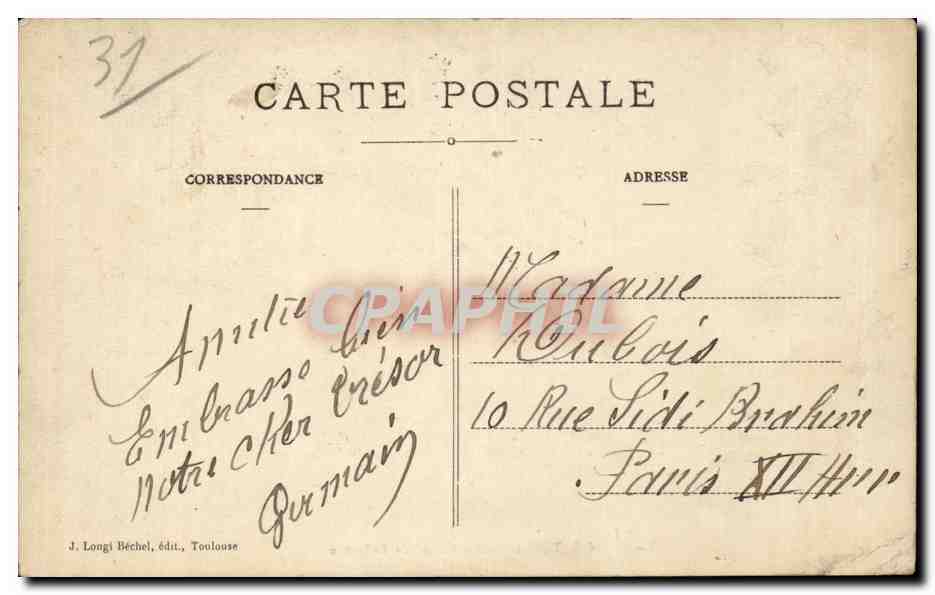 31
CARTE POSTALE
CORRESPONDANCE
ADRESSE
Embrasse bien
notre cher trésor
Germain
Madame
Dubois
10 Rue Sidi Brahim
Paris XII
J. Longi Béchel, édit., Toulouse
CPAPHIL